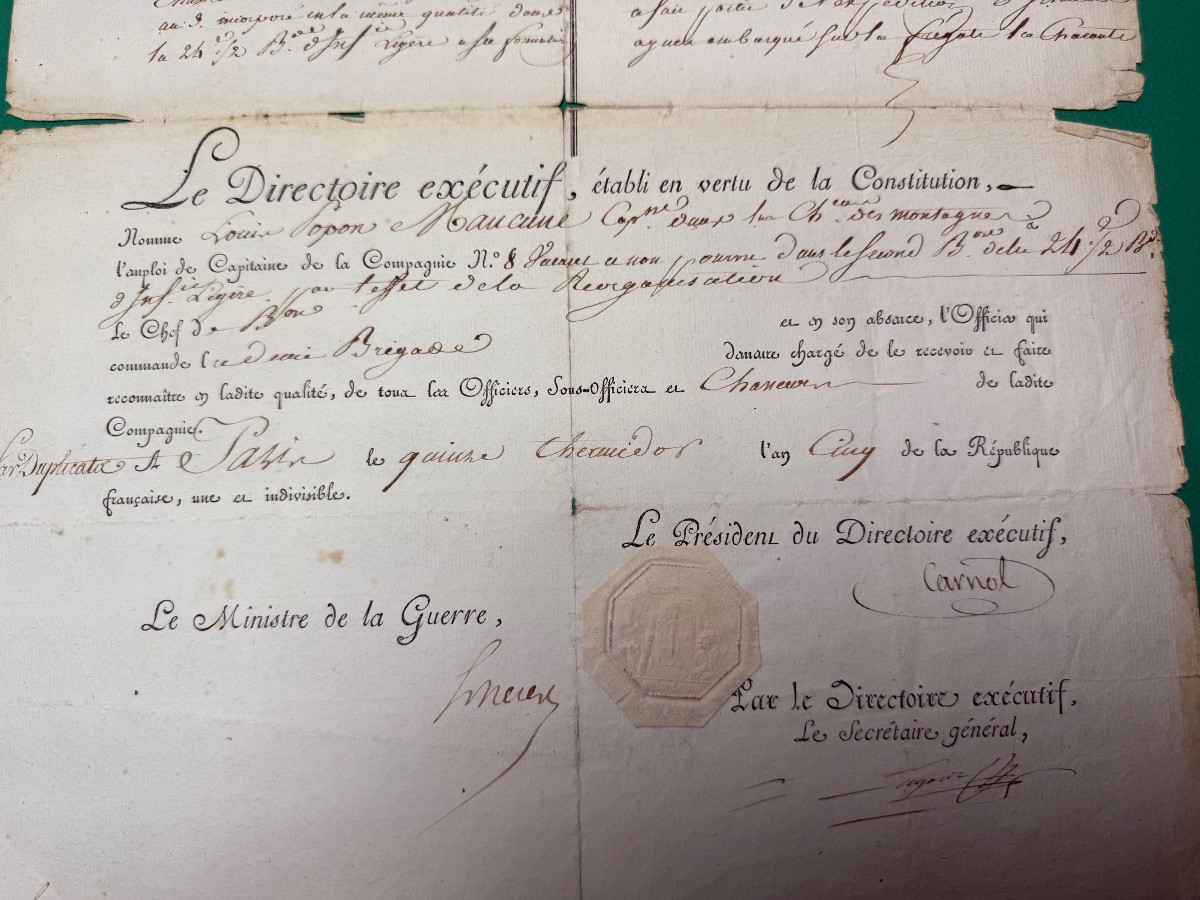 au 3. incorporé en la même qualité dans
la 24e 1/2 B.de d'Inf.ie Légère a sa formation
a fait partie de l'expédition d'
ayant embarqué sur la frégate la Charente
Le Directoire exécutif, établi en vertu de la Constitution,
Nomme Louis Popon Maucune Cap.ne dans les Ch.eurs des montagnes à
l'emploi de Capitaine de la Compagnie N.º 8 Vacant et non pourvu dans le second B.on de la 24.e 1/2 B.de
d'Inf.ie Légère par l'effet de la Réorganisation
Le Chef de B.on et en son absence, l'Officier qui
commande la demi Brigade demeure chargé de le recevoir et faire
reconnaître en ladite qualité, de tous les Officiers, Sous-Officiers et Chasseurs de ladite
Compagnie.
Par Duplicata A Paris le quinze thermidor l'an Cinq de la République
française, une et indivisible.
Le Président du Directoire exécutif,
Carnot
Le Ministre de la Guerre,
Par le Directoire exécutif,
Le Secrétaire général,